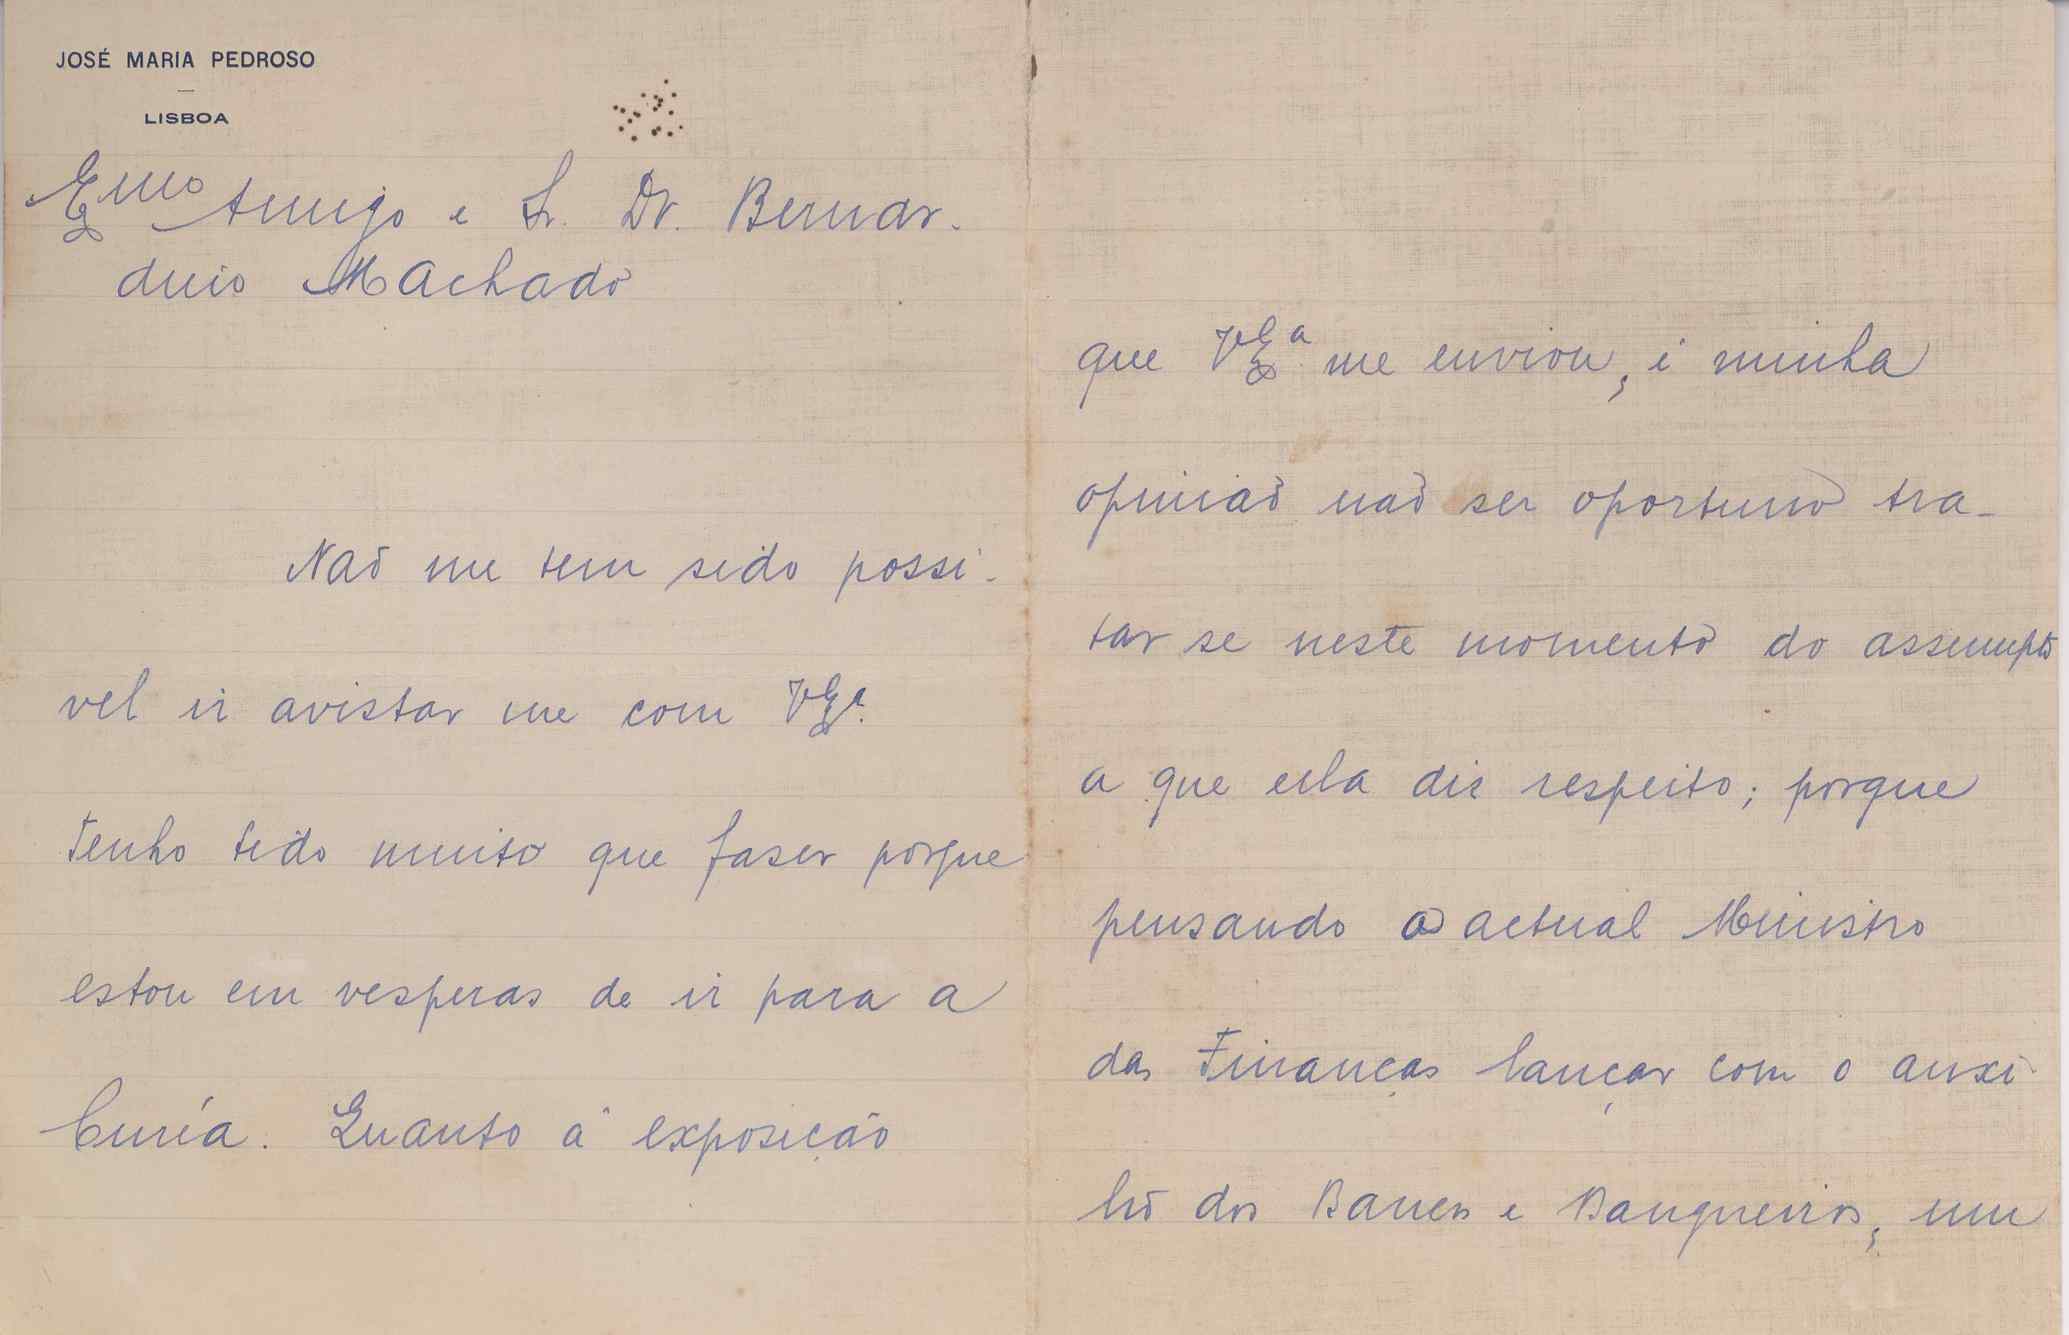 JOSÉ MARIA PEDROSO
LISBOA
Exmo Amigo e Sr. Dr. Bernar-
dino Machado
Não me tem sido possi-
vel ir avistar me com VExa.
Tenho tido muito que faser porque
estou em vesperas de ir para a
Curía. Quanto á exposição
que VExa. me enviou, é minha
opinião não ser oportuno tra-
tar se neste momento do assumpto
a que ella diz respeito; porque
pensando o actual Ministro
das Finanças lançar com o auxi-
lio dos Bancos e Banqueiros, um